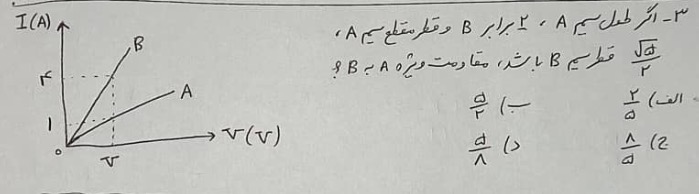 ۳- اگر طول سیم A ، ۲ برابر B و قطر مقطع سیم A ،
√۵/۲ قطر سیم B باشد، مقاومت ویژه A به B ؟
الف) ۲/۵ ب) ۵/۲
ج) ۸/۵ د) ۵/۸
I(A)
B
۴
A
۱
۰
V
V(V)